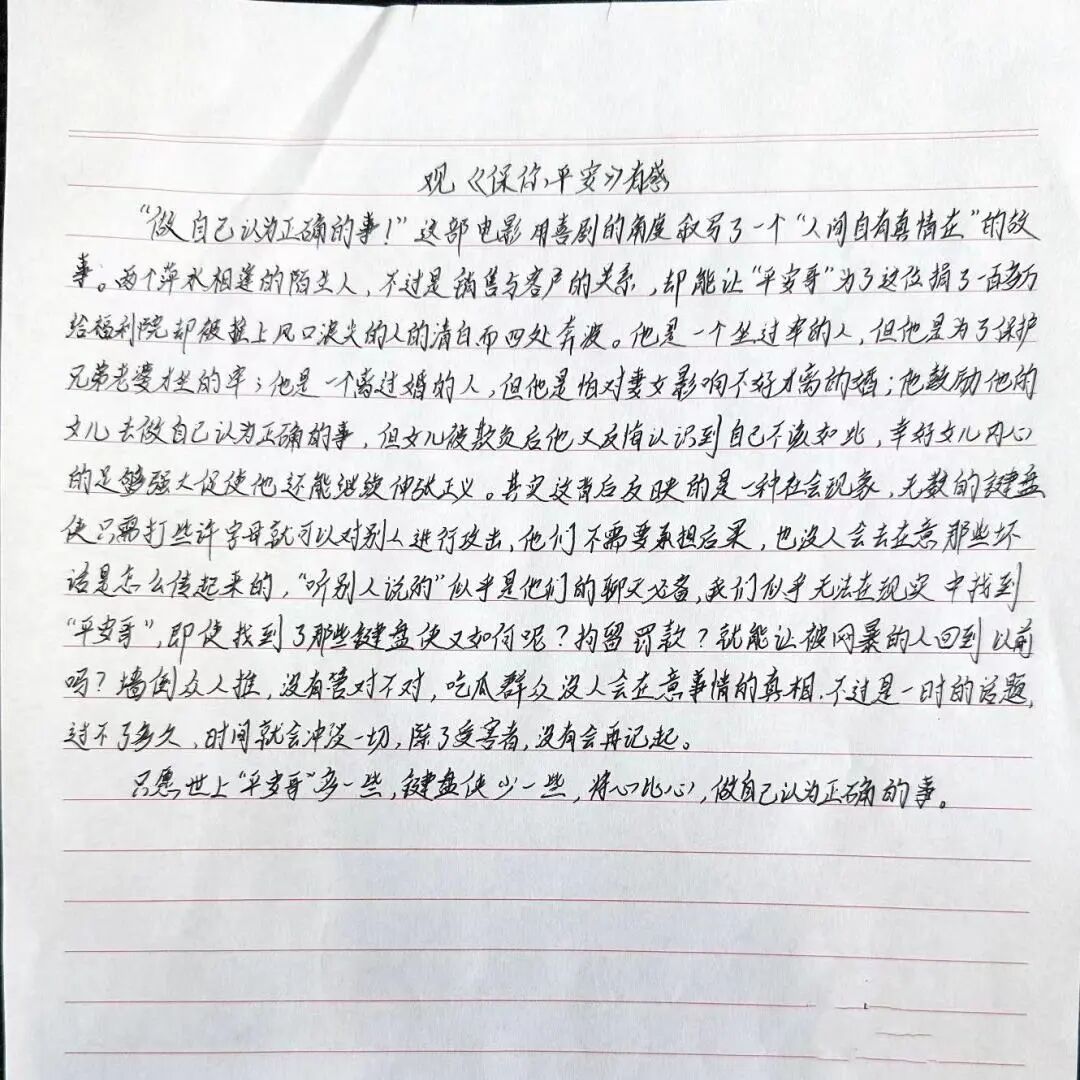 观《保你平安》有感
“做自己认为正确的事！”这部电影用喜剧的角度叙写了一个“人间自有真情在”的故
事。两个萍水相逢的陌生人，不过是销售与客户的关系，却能让“平安哥”为了这位捐了一百多万
给福利院却被推上风口浪尖的人的清白而四处奔波。他是一个坐过牢的人，但他是为了保护
兄弟老婆才坐的牢；他是一个离过婚的人，但他是怕对妻女影响不好才离的婚；他鼓励他的
女儿去做自己认为正确的事，但女儿被欺负后他又反悔认识到自己不该如此，幸好女儿内心
的足够强大促使他还能继续伸张正义。其实这背后反映的是一种社会现象，无数的键盘
侠只需打些许字母就可以对别人进行攻击，他们不需要承担后果，也没人会去在意那些坏
话是怎么传起来的，“听别人说的”似乎是他们的聊天必备，我们似乎无法在现实中找到
“平安哥”，即使找到了那些键盘侠又如何呢？拘留罚款？就能让被网暴的人回到以前
吗？墙倒众人推，没有管对不对，吃瓜群众没人会在意事情的真相，不过是一时的话题，
过不了多久，时间就会冲淡一切，除了受害者，没有会再记起。
只愿世上“平安哥”多一些，键盘侠少一些，将心比心，做自己认为正确的事。